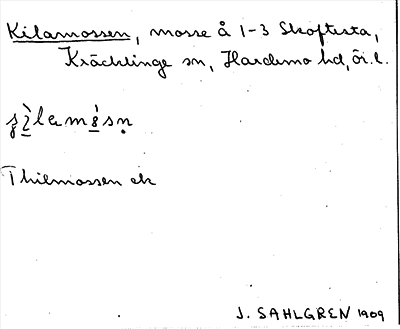 Kilamossen, mosse å 1-3 Skoftesta,
Kräcklinge sn, Hardemo hd, Ör. l.
Thilmossen ek
J. SAHLGREN 1909